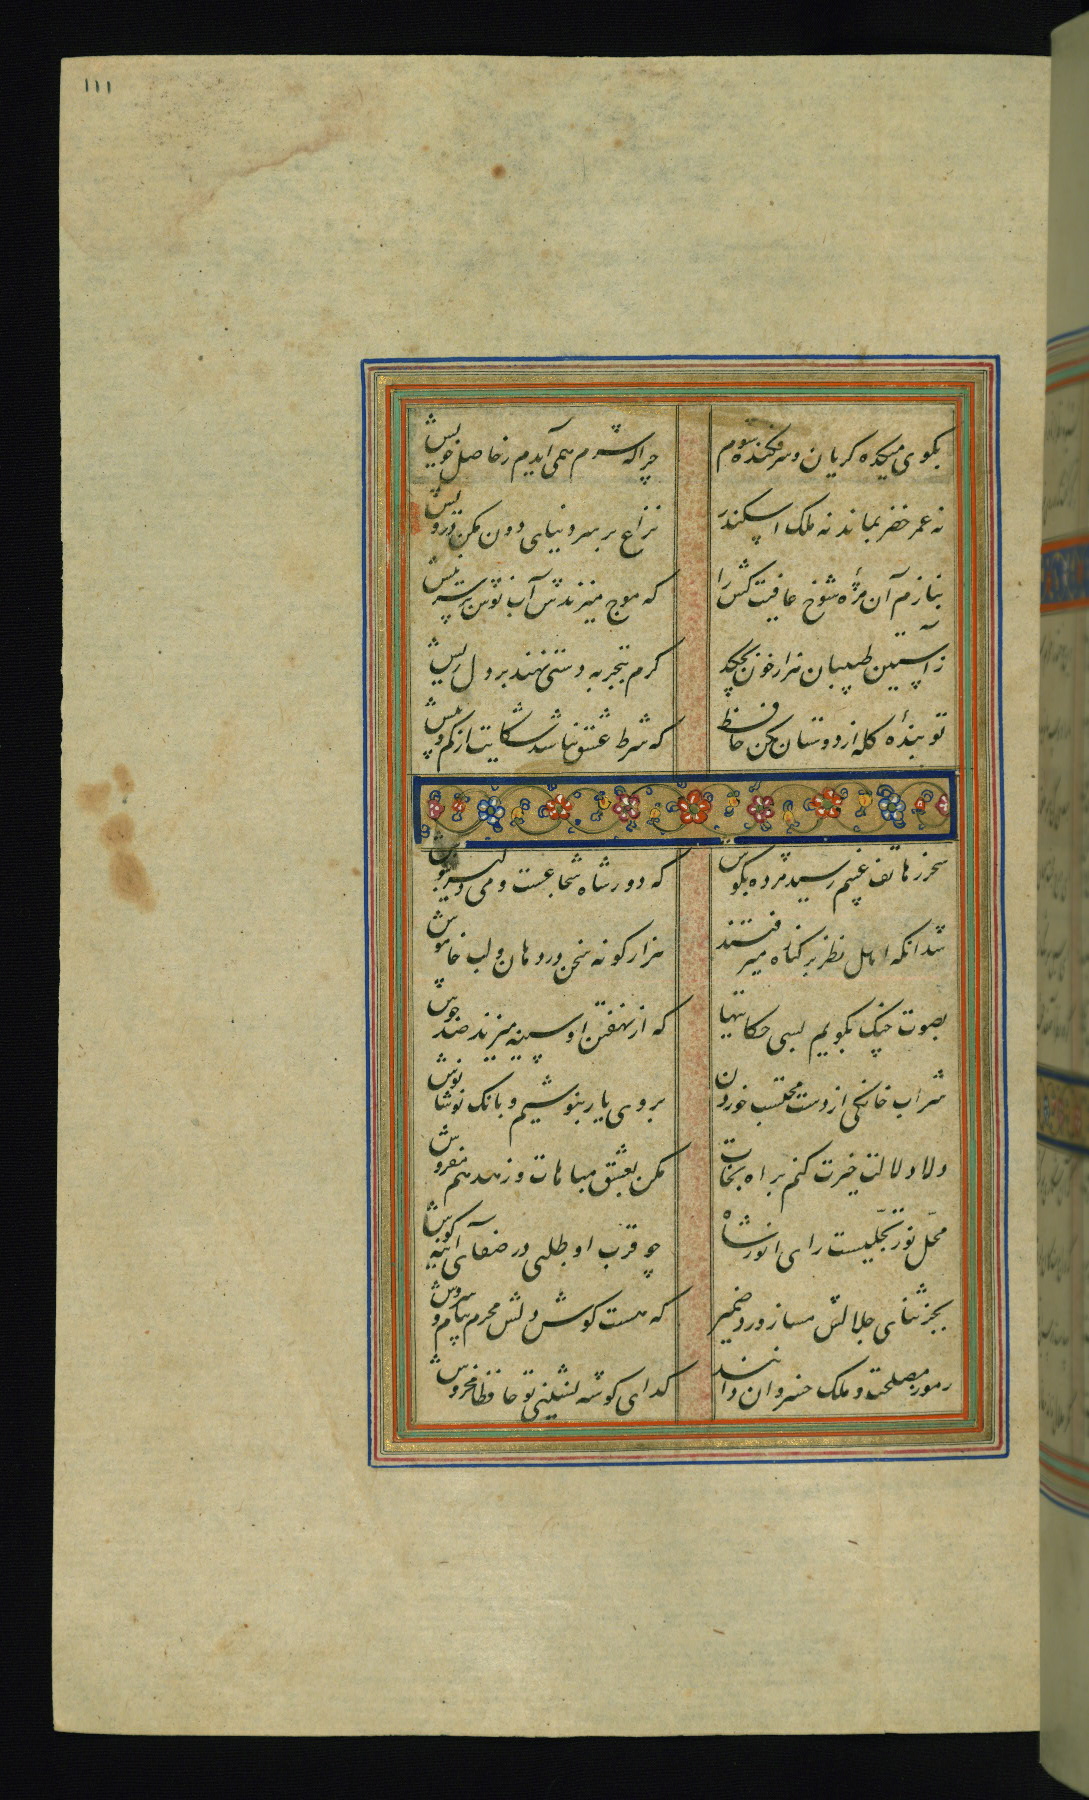 ۱۱۱
بکوی میکده کریان و سرفکنده شوم
چرا که شرم همی آیدم ز حاصل خویش
نه عمر خضر بماند نه ملک اسکندر
نزاع بر سر دنیای دون مکن درویش
بنازم آن مژهٔ شوخ عافیت کش را
که موج میزندش آب نوش بر سر نیش
ز آستین طبیبان هزار خون بچکد
کرم بتجربه دستی نهند بر دل ریش
تو بندهٔ کله از دوستان مکن حافظ
که شرط عشق نباشد شکایت از کم و بیش
سحر ز هاتف غیبم رسید مژده بکوش
که دور شاه شجاعست و می دلیر بنوش
شد انکه اهل نظر بر کناره میرفتند
هزار کونه سخن در دهان و لب خاموش
بصوت چنک بکویم بسی حکایتها
که از نهفتن او سینه میزند جوش
شراب خانکی از دست محتسب خوردن
بروی یار بنوشیم و بانک نوشانوش
دلا دلالت خیرت کنم براه نجات
مکن بعشق مباهات و زهد هم مفروش
محل نور تجلیست رای انور شاه
چو قرب او طلبی در صفای آینه کوش
بجز ثنای جلالش مساز ورد ضمیر
که هست کوش دلش محرم پیام سروش
رموز مصلحت و ملک خسروان دانند
کدای کوشه نشینی تو حافظا مخروش